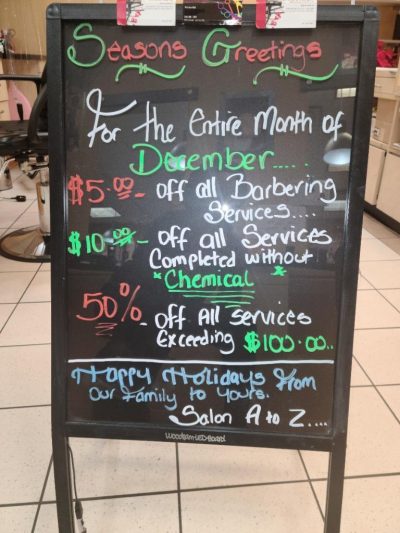 Seasons Greetings
For the Entire Month of
December.....
$5.00 - off all Barbering
Services....
$10.00 - off all Services
Completed without
*Chemical*
50% - off All services
Exceeding $100.00..
Happy Holidays From
Our Family to Yours.
Salon A to Z....